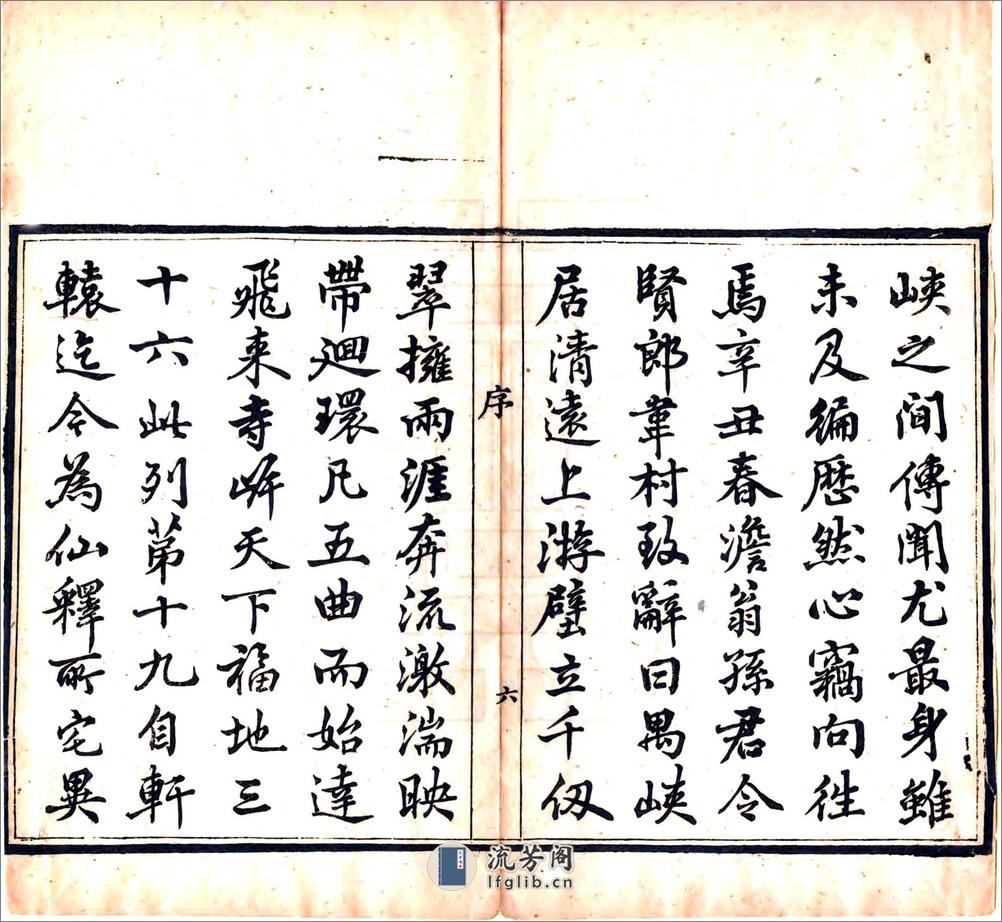 峽之間傳聞尤最身雖
未及徧歷然心竊向徃
焉辛丑春澹翁孫君令
賢郎葦村致辭曰禺峽
居清遠上游壁立千仭
序
六
翠擁兩涯奔流激湍映
帶迴環凡五曲而始達
飛来寺㟁天下福地三
十六此列第十九自軒
轅迄今為仙釋所宅異
流芳阁
lfglib.cn